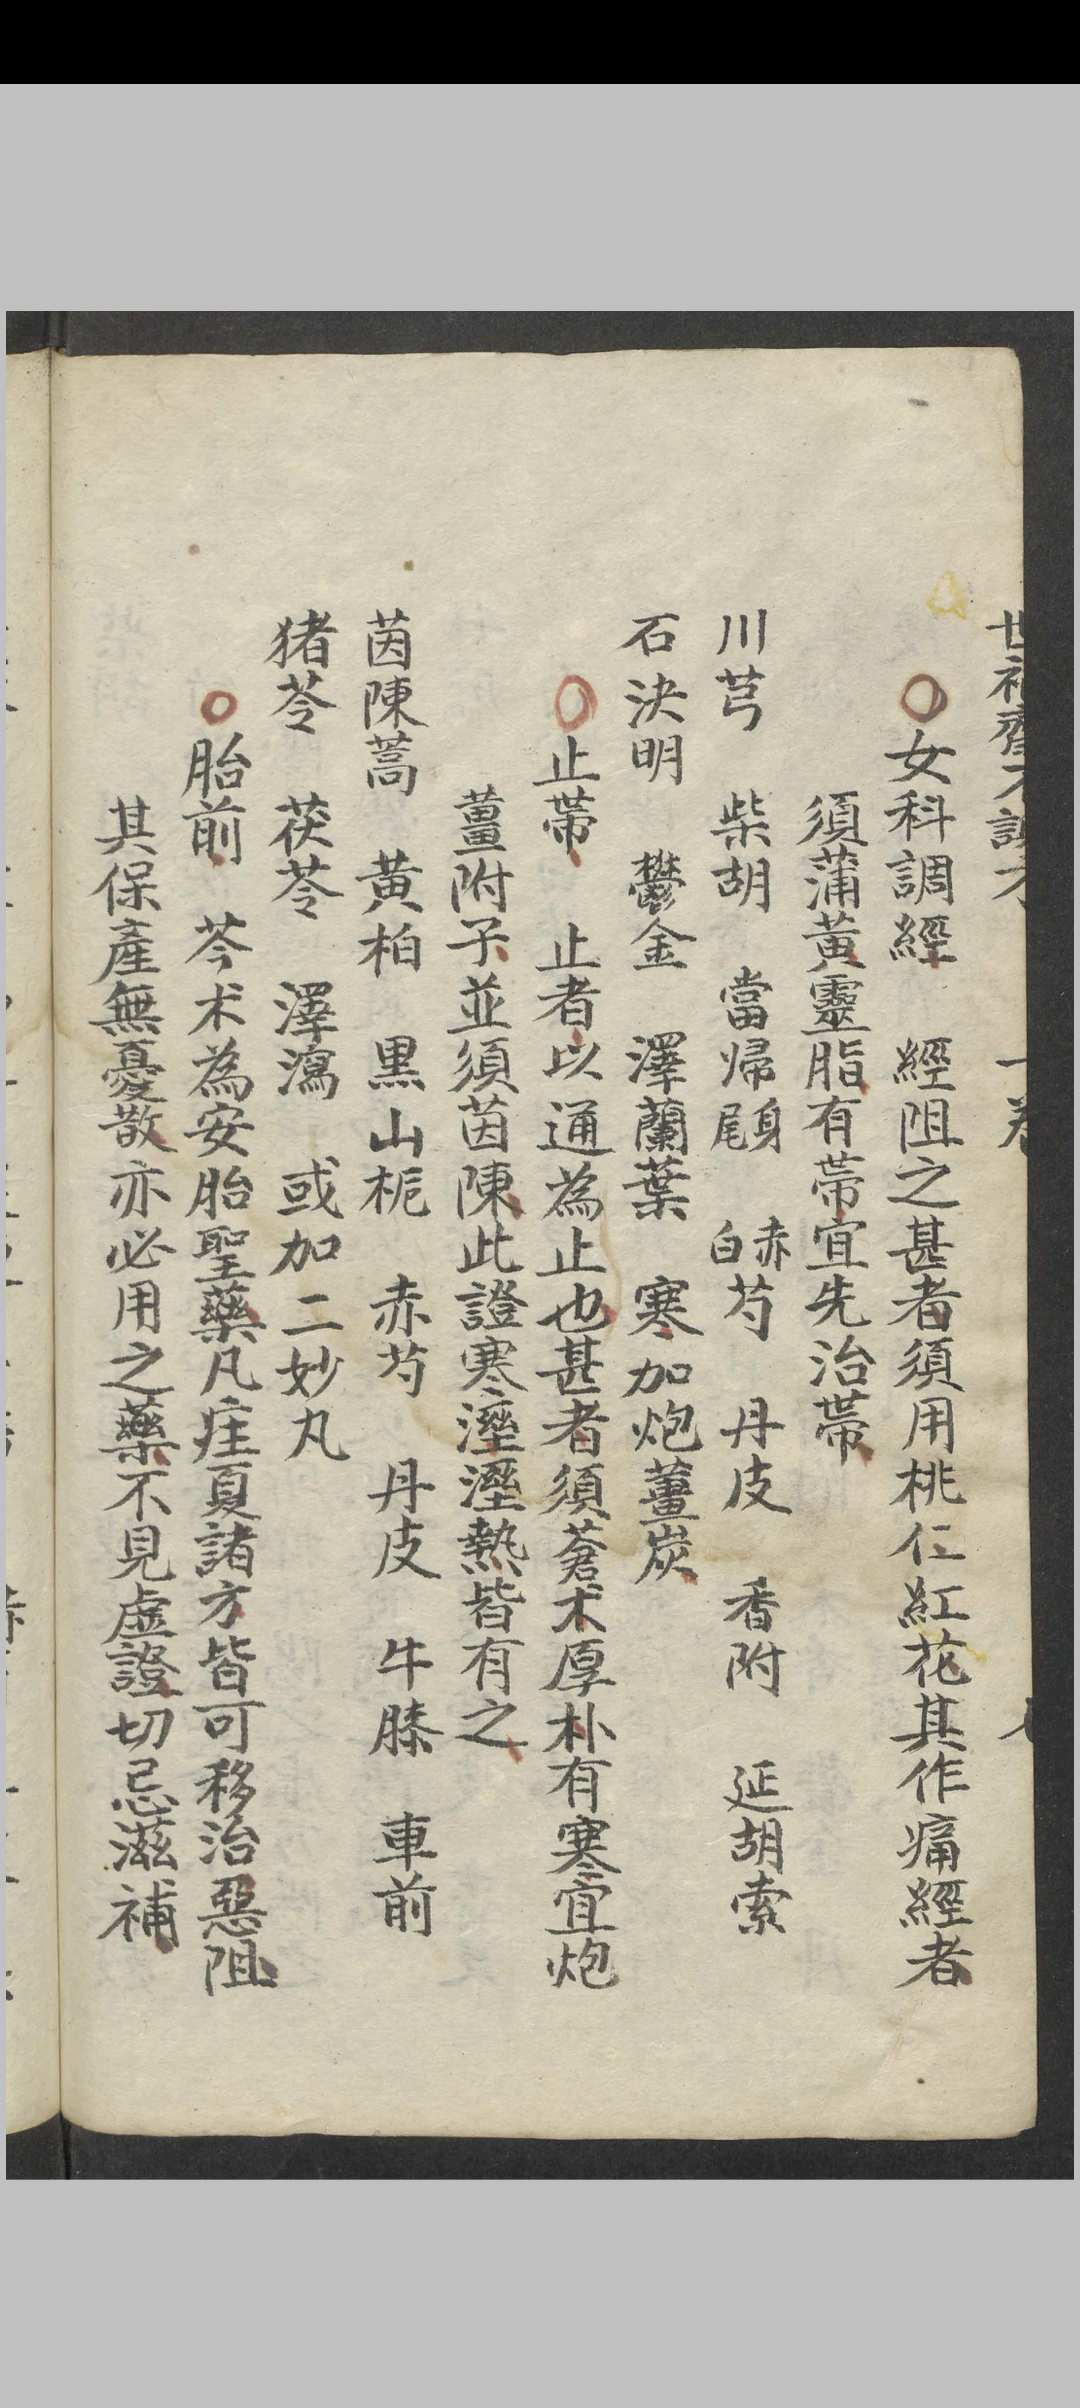 世補齋不謝方　一卷
○女科調經　經阻之甚者須用桃仁紅花其作痛經者
須蒲黃靈脂有帶宜先治帶
川芎　柴胡　當歸身尾　赤白芍　丹皮　香附　延胡索
石決明　鬱金　澤蘭葉　寒加炮薑炭
○止帶　止者以通為止也甚者須蒼朮厚朴有寒宜炮
薑附子並須茵陳此證寒溼溼熱皆有之
茵陳蒿　黃柏　黑山梔　赤芍　丹皮　牛膝　車前
猪苓　茯苓　澤瀉　或加二妙丸
○胎前　芩朮為安胎聖藥凡疰夏諸方皆可移治惡阻
其保產無憂散亦必用之藥不見虛證切忌滋補